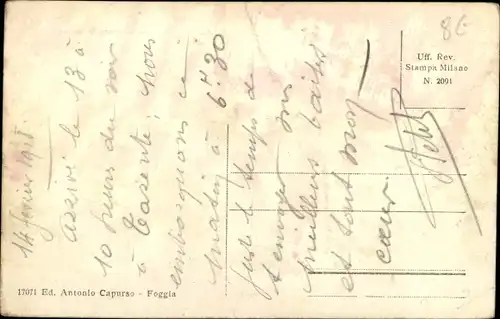 14 fevrier 1918
Arrivé le 13 à
10 heures du soir
à Tarente, nous
embarquons ce
matin à 6h30
juste le temps de
t'envoyer mes
meilleurs baisers
et tout mon
cœur
86
Uff. Rev.
Stampa Milano
N. 2091
17071 Ed. Antonio Capurso - Foggia